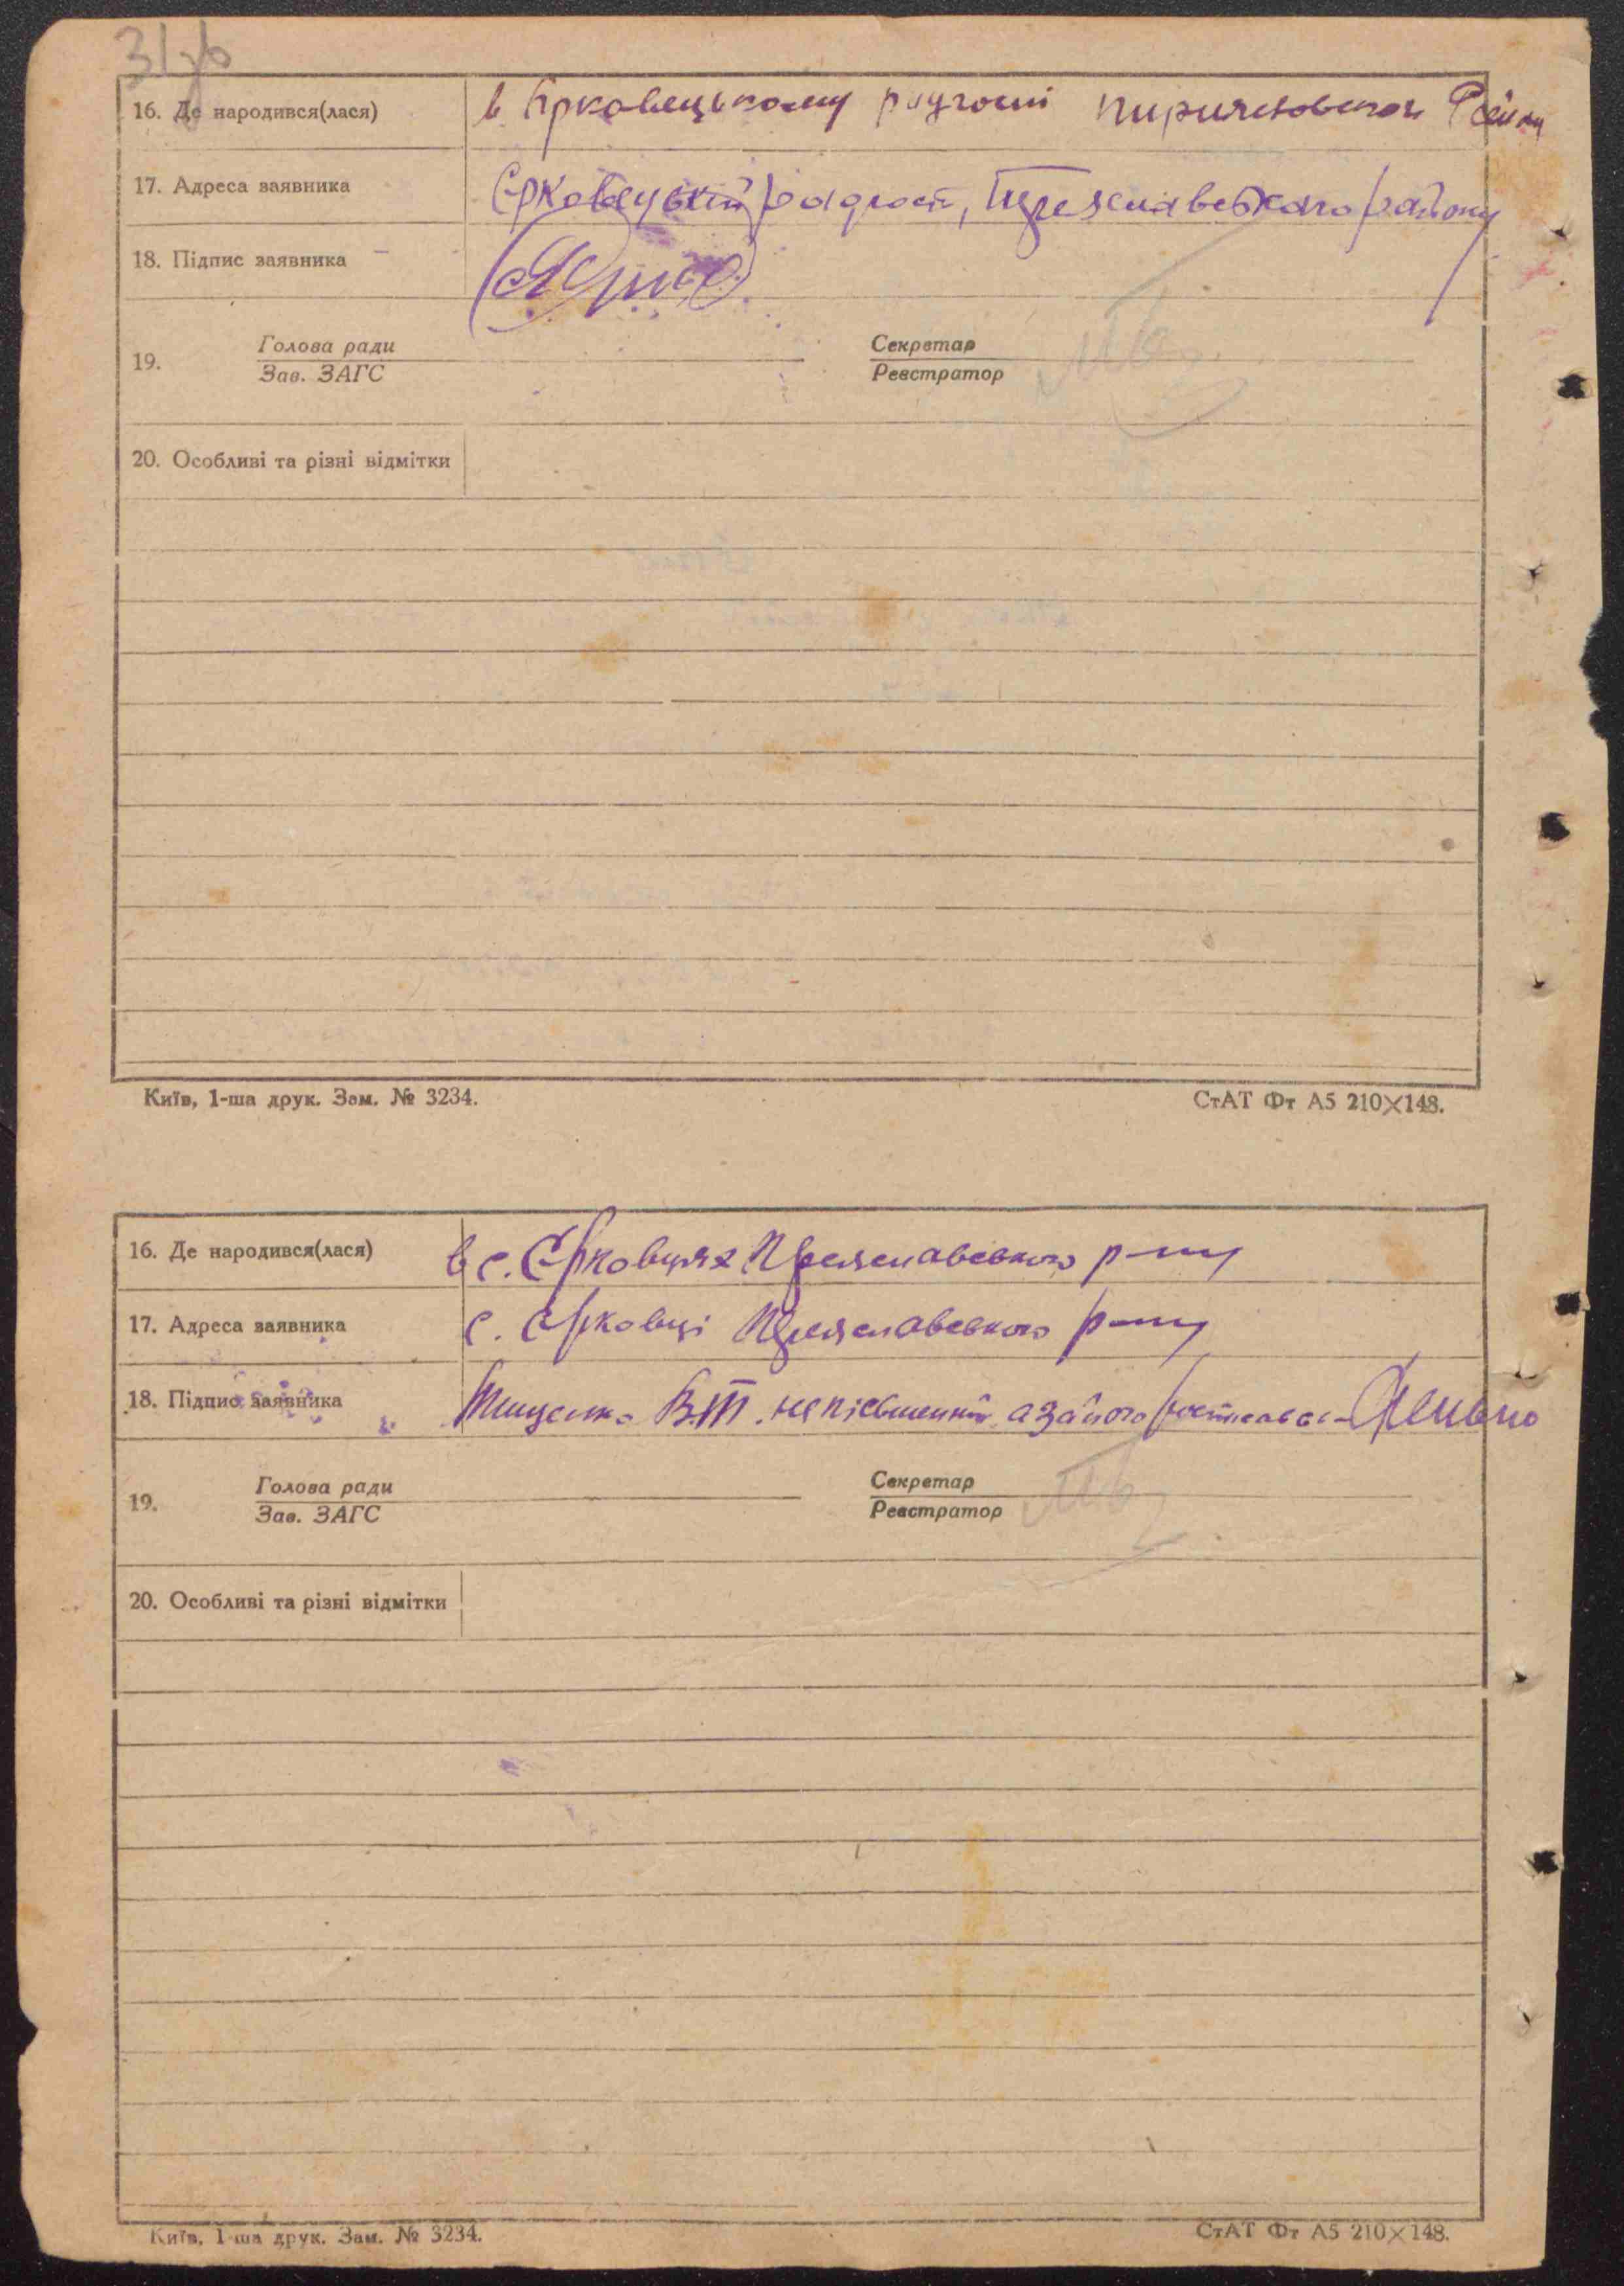 31зв
16. Де народився(лася) в Єрковецькому
17. Адреса заявника Єрковецький радгосп, Переяславського району
18. Підпис заявника
19. Голова ради Секретар
Зав. ЗАГС Реєстратор
20. Особливі та різні відмітки
Київ, 1-ша друк. Зам. № 3234. СтАТ Фт А5 210×148.
16. Де народився(лася) в с. Єрковцях Переяславського р-ну
17. Адреса заявника с. Єрковці Переяславського р-ну
18. Підпис заявника Тищенко В.Т. неписьменний а за його
19. Голова ради Секретар
Зав. ЗАГС Реєстратор
20. Особливі та різні відмітки
Київ, 1-ша друк. Зам. № 3234. СтАТ Фт А5 210×148.